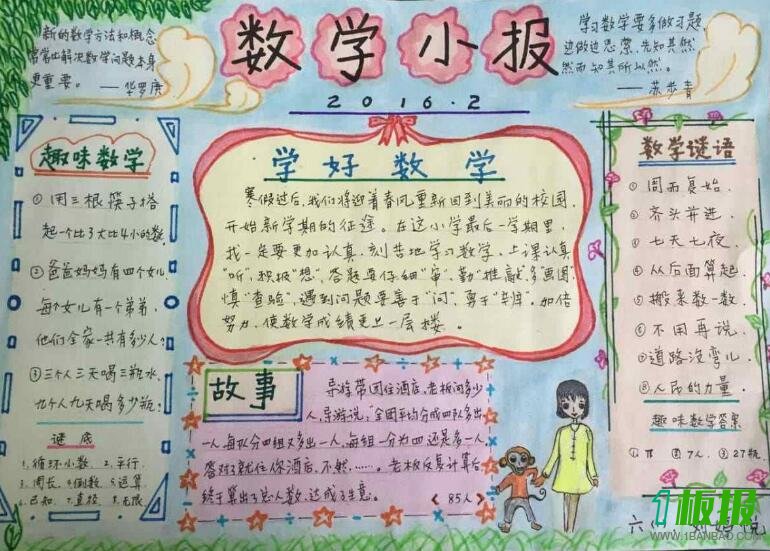 数学小报
2016.2
新的数学方法和概念
常常比解决数学问题本身
更重要。
——华罗庚
学习数学要多做习题,
边做边思索,先知其然
然而知其所以然。
——苏步青
趣味数学
①用三根筷子搭
起一个比3大比4小的数.
②爸爸妈妈有四个女儿
每个女儿有一个弟弟,
他们全家一共有多少人?
③三个人三天喝三瓶水,
九个人九天喝多少瓶?
谜底
1.循环小数 2.平行.
3.周长.4.倒数.5.运算
6.已知.7.直径.8.无限
学好数学
寒假过后,我们将迎着春风重新回到美丽的校园,
开始新学期的征途。在这小学最后一学期里,
我一定要更加认真,刻苦地学习数学,上课认真
"听",积极"想",答题要仔细"审",勤"推敲",多"画图"
慎"查验",遇到问题要善于"问",勇于"辩",加倍
努力,使数学成绩更上一层楼。
故事
导游带团住酒店,老板问多少
人,导游说:"全团平均分成四队多出
一人,每队分四组又多出一人,每组一分为四还是多一人,
答对了就住你酒店,不然,……。老板反复计算后
终于算出了总人数,达成了生意。
《85人》
数学谜语
①周而复始.
②齐头并进.
③七天七夜.
④从后面算起.
⑤搬来数一数.
⑥不用再说.
⑦道路没弯儿.
⑧人民的力量.
趣味数学答案
①π ②7人.③27瓶.
六
1板报
WWW.1BANBAO.COM